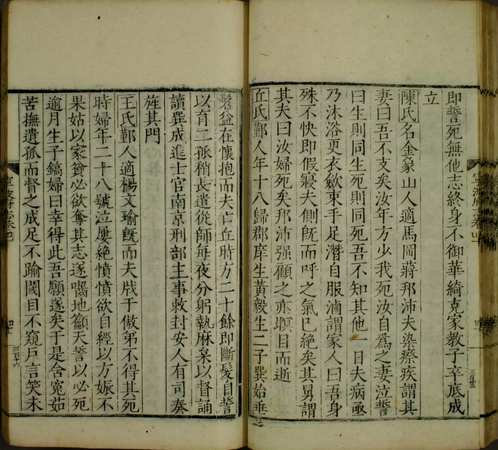 即誓死無他志終身不御華綺克家教子卒底成
立
陳氏名金象山人適馬岡蔣沛夫染瘵疾謂其
妻曰吾不支矣汝年方少我死汝自爲之妻泣誓
曰生則同生死則同死吾不知其他一日夫病亟
乃沐浴更衣歛束手足潛自服滷謂家人曰吾身
殊不快即假寢夫側旣而呼之氣已絶矣其舅謂
其夫曰汝婦死矣那沛强顧之亦瞑目而逝
丘氏鄞人年十八歸郡庠生黄毅生二子巽始垂
髫益在懷抱而夫亡丘時方二十餘即斷髪自誓
以育二孤稍長遣從師每夜分躬執麻枲以督誦
讀巽成進士官南京刑部主事敕封安人有司奏
旌其門
王氏鄞人適楊文瑜旣而夫戕于傲弟不得其死
時婦年二十八號泣屢絶憤憤欲自經以方娠不
果姑以家貧必欲奪其志遂囓地籲天誓以必死
逾月生子鎬婦曰幸得此吾願遂矣于是含寃茹
苦撫遺孤而督之成足不踰閾目不窺戸言笑未